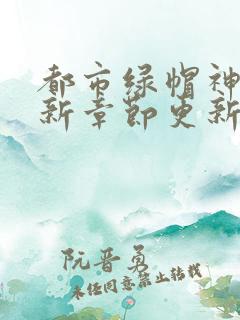 都市绿帽神
新章节更新
阮晋勇
未经同意禁止转载